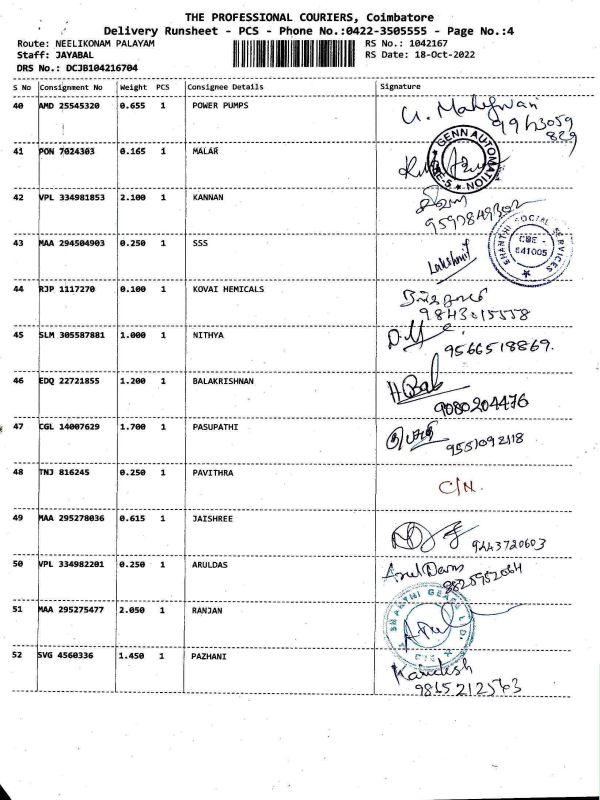 THE PROFESSIONAL COURIERS, Coimbatore
Delivery Runsheet - PCS - Phone No.:0422-3505555 - Page No.:4
Route: NEELIKONAM PALAYAM RS No.: 1042167
Staff: JAYABAL RS Date: 18-Oct-2022
DRS No.: DCJB104216704
S No Consignment No Weight PCS Consignee Details Signature
40 AMD 25545320 0.655 1 POWER PUMPS
41 PON 7024303 0.165 1 MALAR
GENN AUTOMATION
42 VPL 334981853 2.100 1 KANNAN
43 MAA 294504903 0.250 1 SSS Lakshmi
SHANTHI SOCIAL SERVICES
CBE -
641005
44 RJP 1117270 0.100 1 KOVAI HEMICALS
9843015558
45 SLM 305587881 1.000 1 NITHYA
9566518869.
46 EDQ 22721855 1.200 1 BALAKRISHNAN
9080204476
47 CGL 14007629 1.700 1 PASUPATHI
9551092118
48 TNJ 816245 0.250 1 PAVITHRA C/N.
49 MAA 295278036 0.615 1 JAISHREE
9443720603
50 VPL 334982201 0.250 1 ARULDAS
51 MAA 295275477 2.050 1 RANJAN
SHANTHI GEARS LTD
52 SVG 4560336 1.450 1 PAZHANI